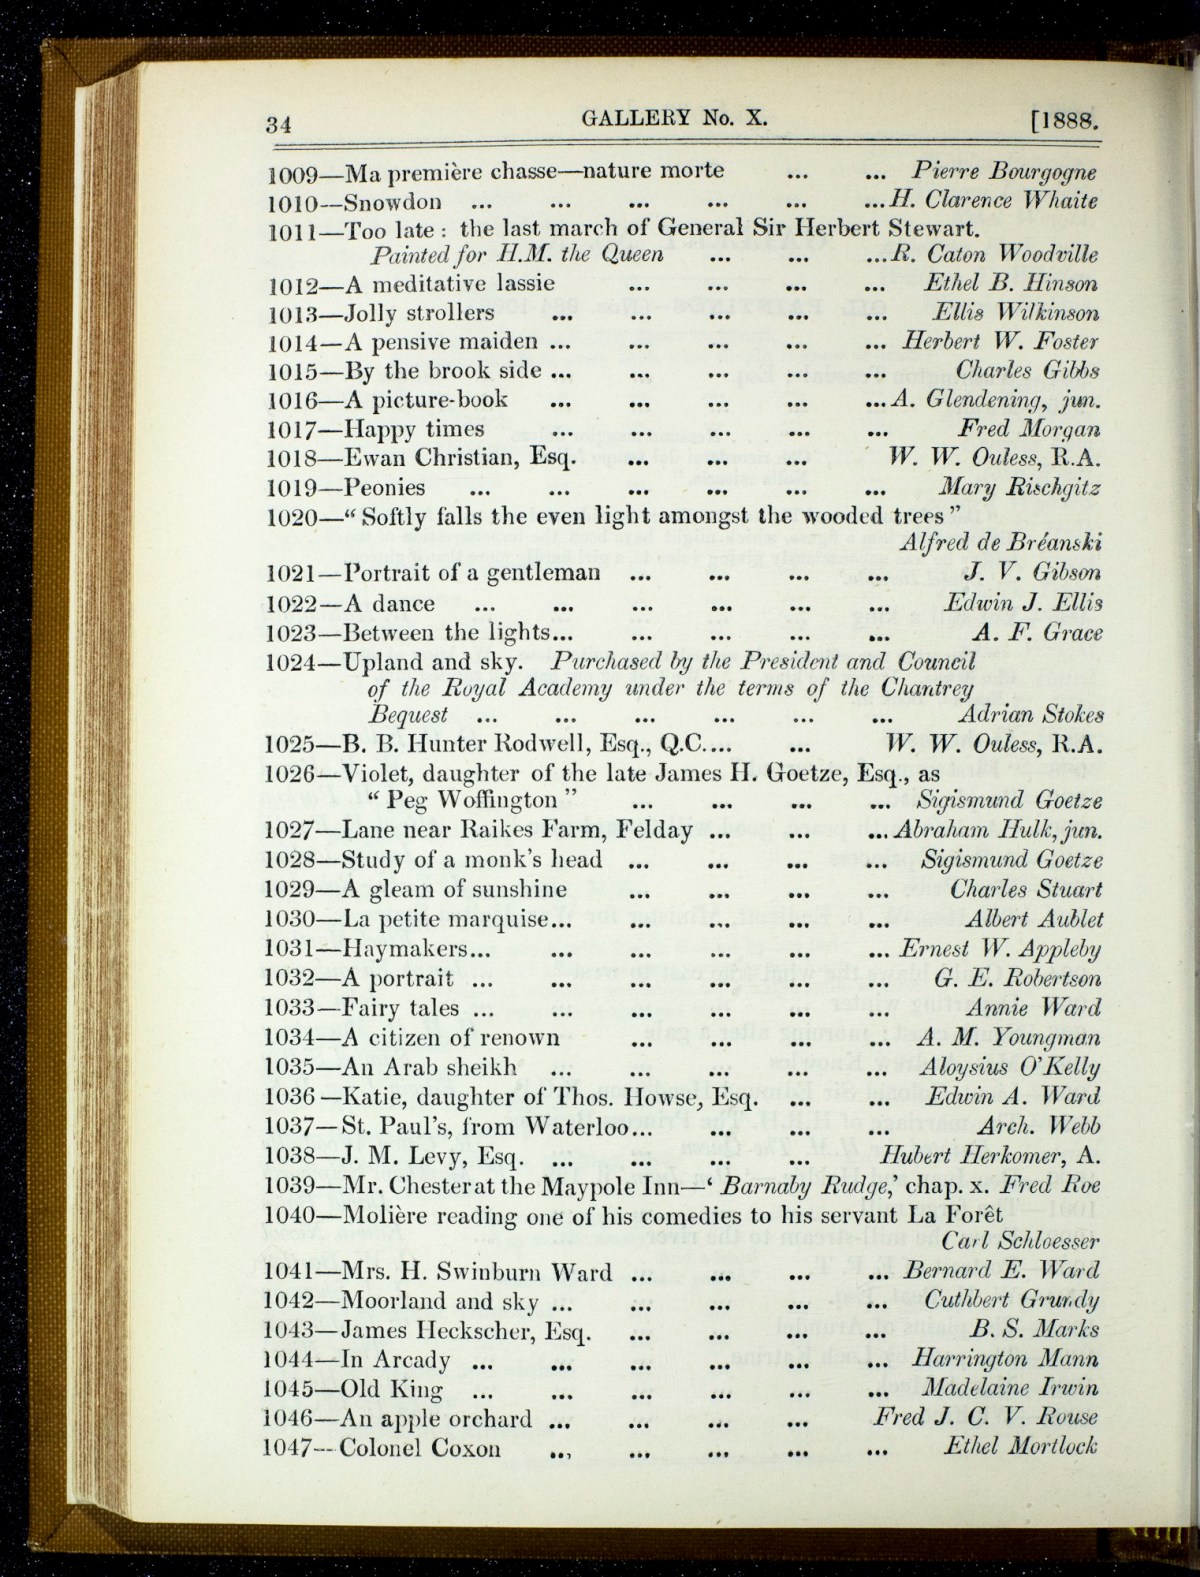 34 GALLERY No. X. [1888.
1009—Ma première chasse—nature morte ... ... Pierre Bourgogne
1010—Snowdon ... ... ... ... ... ... H. Clarence Whaite
1011—Too late : the last march of General Sir Herbert Stewart.
Painted for H.M. the Queen ... ... ... R. Caton Woodville
1012—A meditative lassie ... ... ... ... Ethel B. Hinson
1013—Jolly strollers ... ... ... ... ... Ellis Wilkinson
1014—A pensive maiden ... ... ... ... ... Herbert W. Foster
1015—By the brook side ... ... ... ... ... Charles Gibbs
1016—A picture-book ... ... ... ... ... A. Glendening, jun.
1017—Happy times ... ... ... ... ... Fred Morgan
1018—Ewan Christian, Esq. ... ... ... W. W. Ouless, R.A.
1019—Peonies ... ... ... ... ... ... Mary Rischgitz
1020—“ Softly falls the even light amongst the wooded trees ”
Alfred de Bréanski
1021—Portrait of a gentleman ... ... ... ... J. V. Gibson
1022—A dance ... ... ... ... ... ... Edwin J. Ellis
1023—Between the lights... ... ... ... ... A. F. Grace
1024—Upland and sky. Purchased by the President and Council
of the Royal Academy under the terms of the Chantrey
Bequest ... ... ... ... ... ... Adrian Stokes
1025—B. B. Hunter Rodwell, Esq., Q.C.... ... W. W. Ouless, R.A.
1026—Violet, daughter of the late James H. Goetze, Esq., as
“ Peg Woffington ” ... ... ... ... Sigismund Goetze
1027—Lane near Raikes Farm, Felday ... ... ... Abraham Hulk, jun.
1028—Study of a monk's head ... ... ... ... Sigismund Goetze
1029—A gleam of sunshine ... ... ... ... Charles Stuart
1030—La petite marquise... ... ... ... ... Albert Aublet
1031—Haymakers... ... ... ... ... ... Ernest W. Appleby
1032—A portrait ... ... ... ... ... ... G. E. Robertson
1033—Fairy tales ... ... ... ... ... ... Annie Ward
1034—A citizen of renown ... ... ... ... A. M. Youngman
1035—An Arab sheikh ... ... ... ... ... Aloysius O'Kelly
1036—Katie, daughter of Thos. Howse, Esq. ... ... Edwin A. Ward
1037—St. Paul's, from Waterloo... ... ... ... Arch. Webb
1038—J. M. Levy, Esq. ... ... ... ... Hubert Herkomer, A.
1039—Mr. Chester at the Maypole Inn—‘ Barnaby Rudge,’ chap. x. Fred Roe
1040—Molière reading one of his comedies to his servant La Forêt
Carl Schloesser
1041—Mrs. H. Swinburn Ward ... ... ... ... Bernard E. Ward
1042—Moorland and sky ... ... ... ... ... Cuthbert Grundy
1043—James Heckscher, Esq. ... ... ... ... B. S. Marks
1044—In Arcady ... ... ... ... ... ... Harrington Mann
1045—Old King ... ... ... ... ... ... Madelaine Irwin
1046—An apple orchard ... ... ... ... Fred J. C. V. Rouse
1047—Colonel Coxon ... ... ... ... ... Ethel Mortlock